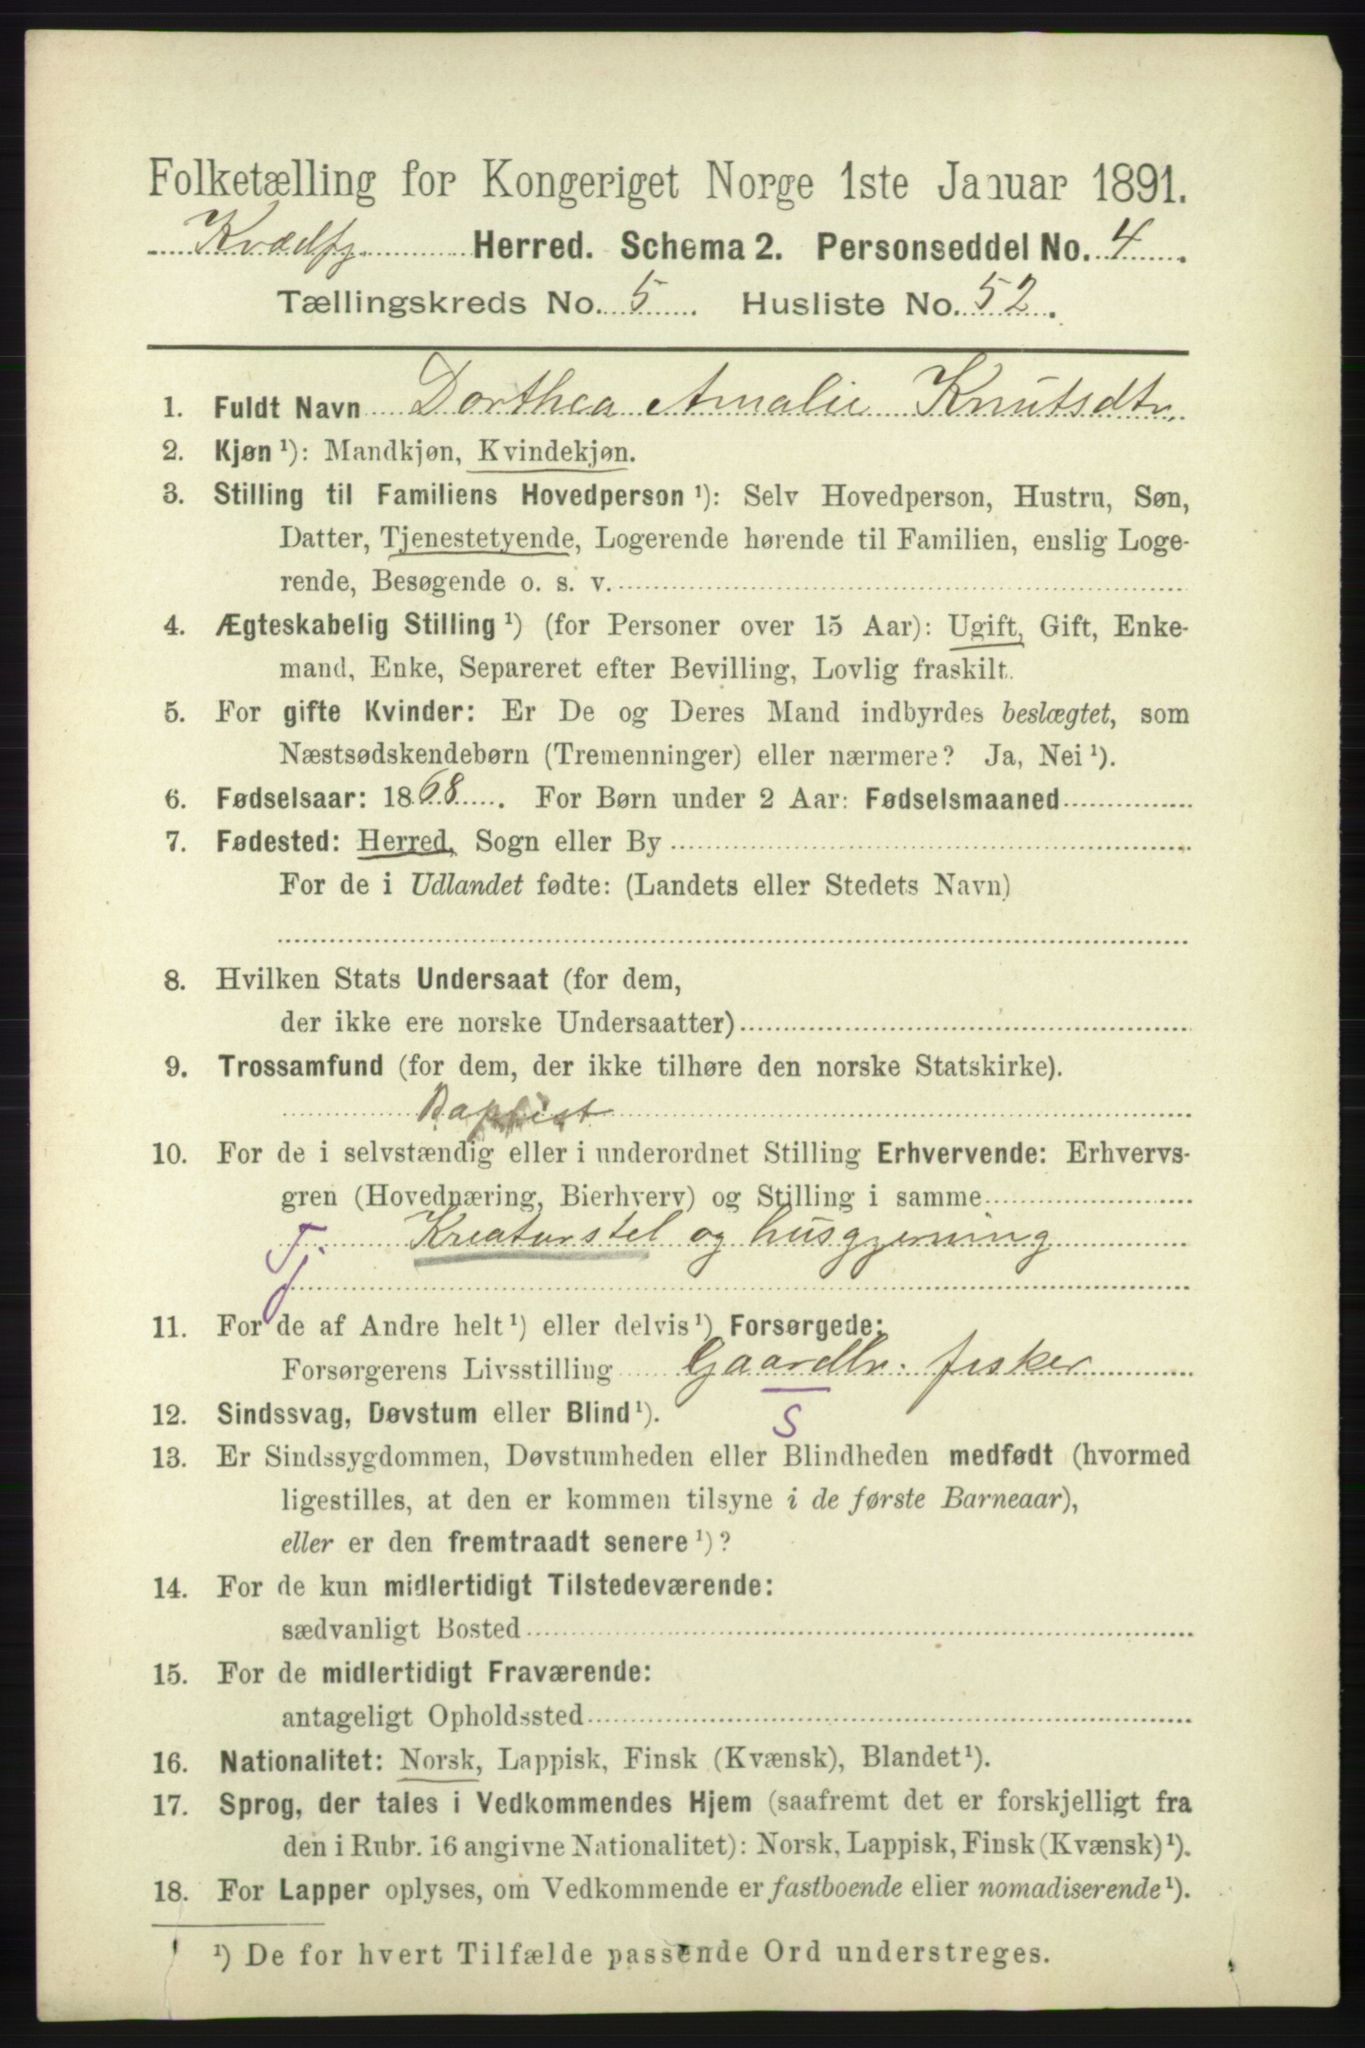 Folketælling for Kongeriget Norge 1ste Januar 1891.
Kvædfj Herred. Schema 2. Personseddel No. 4.
Tællingskreds No. 5. Husliste No. 52.
1. Fuldt Navn Dorthea Amalie Knutsdtr.
2. Kjøn ¹): Mandkjøn, Kvindekjøn.
3. Stilling til Familiens Hovedperson ¹): Selv Hovedperson, Hustru, Søn,
Datter, Tjenestetyende, Logerende hørende til Familien, enslig Loge-
rende, Besøgende o. s. v.
4. Ægteskabelig Stilling ¹) (for Personer over 15 Aar): Ugift, Gift, Enke-
mand, Enke, Separeret efter Bevilling, Lovlig fraskilt.
5. For gifte Kvinder: Er De og Deres Mand indbyrdes beslægtet, som
Næstsødskendebørn (Tremenninger) eller nærmere? Ja, Nei ¹).
6. Fødselsaar: 1868. For Børn under 2 Aar: Fødselsmaaned
7. Fødested: Herred, Sogn eller By
For de i Udlandet fødte: (Landets eller Stedets Navn)
8. Hvilken Stats Undersaat (for dem,
der ikke ere norske Undersaatter)
9. Trossamfund (for dem, der ikke tilhøre den norske Statskirke).
Baptist
10. For de i selvstændig eller i underordnet Stilling Erhvervende: Erhvervs-
gren (Hovednæring, Bierhverv) og Stilling i samme
Tj. Kreaturstel og husgjerning
11. For de af Andre helt ¹) eller delvis ¹) Forsørgede:
Forsørgerens Livsstilling Gaardbr. fisker
S
12. Sindssvag, Døvstum eller Blind ¹).
13. Er Sindssygdommen, Døvstumheden eller Blindheden medfødt (hvormed
ligestilles, at den er kommen tilsyne i de første Barneaar),
eller er den fremtraadt senere ¹)?
14. For de kun midlertidigt Tilstedeværende:
sædvanligt Bosted
15. For de midlertidigt Fraværende:
antageligt Opholdssted
16. Nationalitet: Norsk, Lappisk, Finsk (Kvænsk), Blandet ¹).
17. Sprog, der tales i Vedkommendes Hjem (saafremt det er forskjelligt fra
den i Rubr. 16 angivne Nationalitet): Norsk, Lappisk, Finsk (Kvænsk) ¹).
18. For Lapper oplyses, om Vedkommende er fastboende eller nomadiserende ¹).
¹) De for hvert Tilfælde passende Ord understreges.